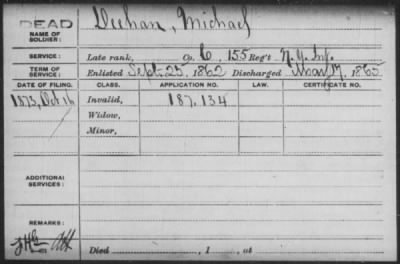 DEAD
NAME OF SOLDIER: Deehan, Michael
SERVICE: Late rank, Co. C, 155 Reg't N.Y. Inf.
TERM OF SERVICE: Enlisted Sept. 25, 1862 Discharged May 17, 1865
DATE OF FILING. CLASS. APPLICATION NO. LAW. CERTIFICATE NO.
1873, Oct 16 Invalid, 187.134
Widow,
Minor,
ADDITIONAL SERVICES:
REMARKS:
Died , 1 , at